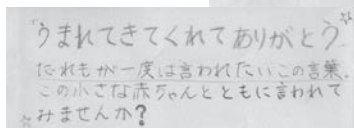 "うまれてきてくれてありがとう"
だれもが一度は言われたいこの言葉。
この小さな赤ちゃんとともに言われて
みませんか？